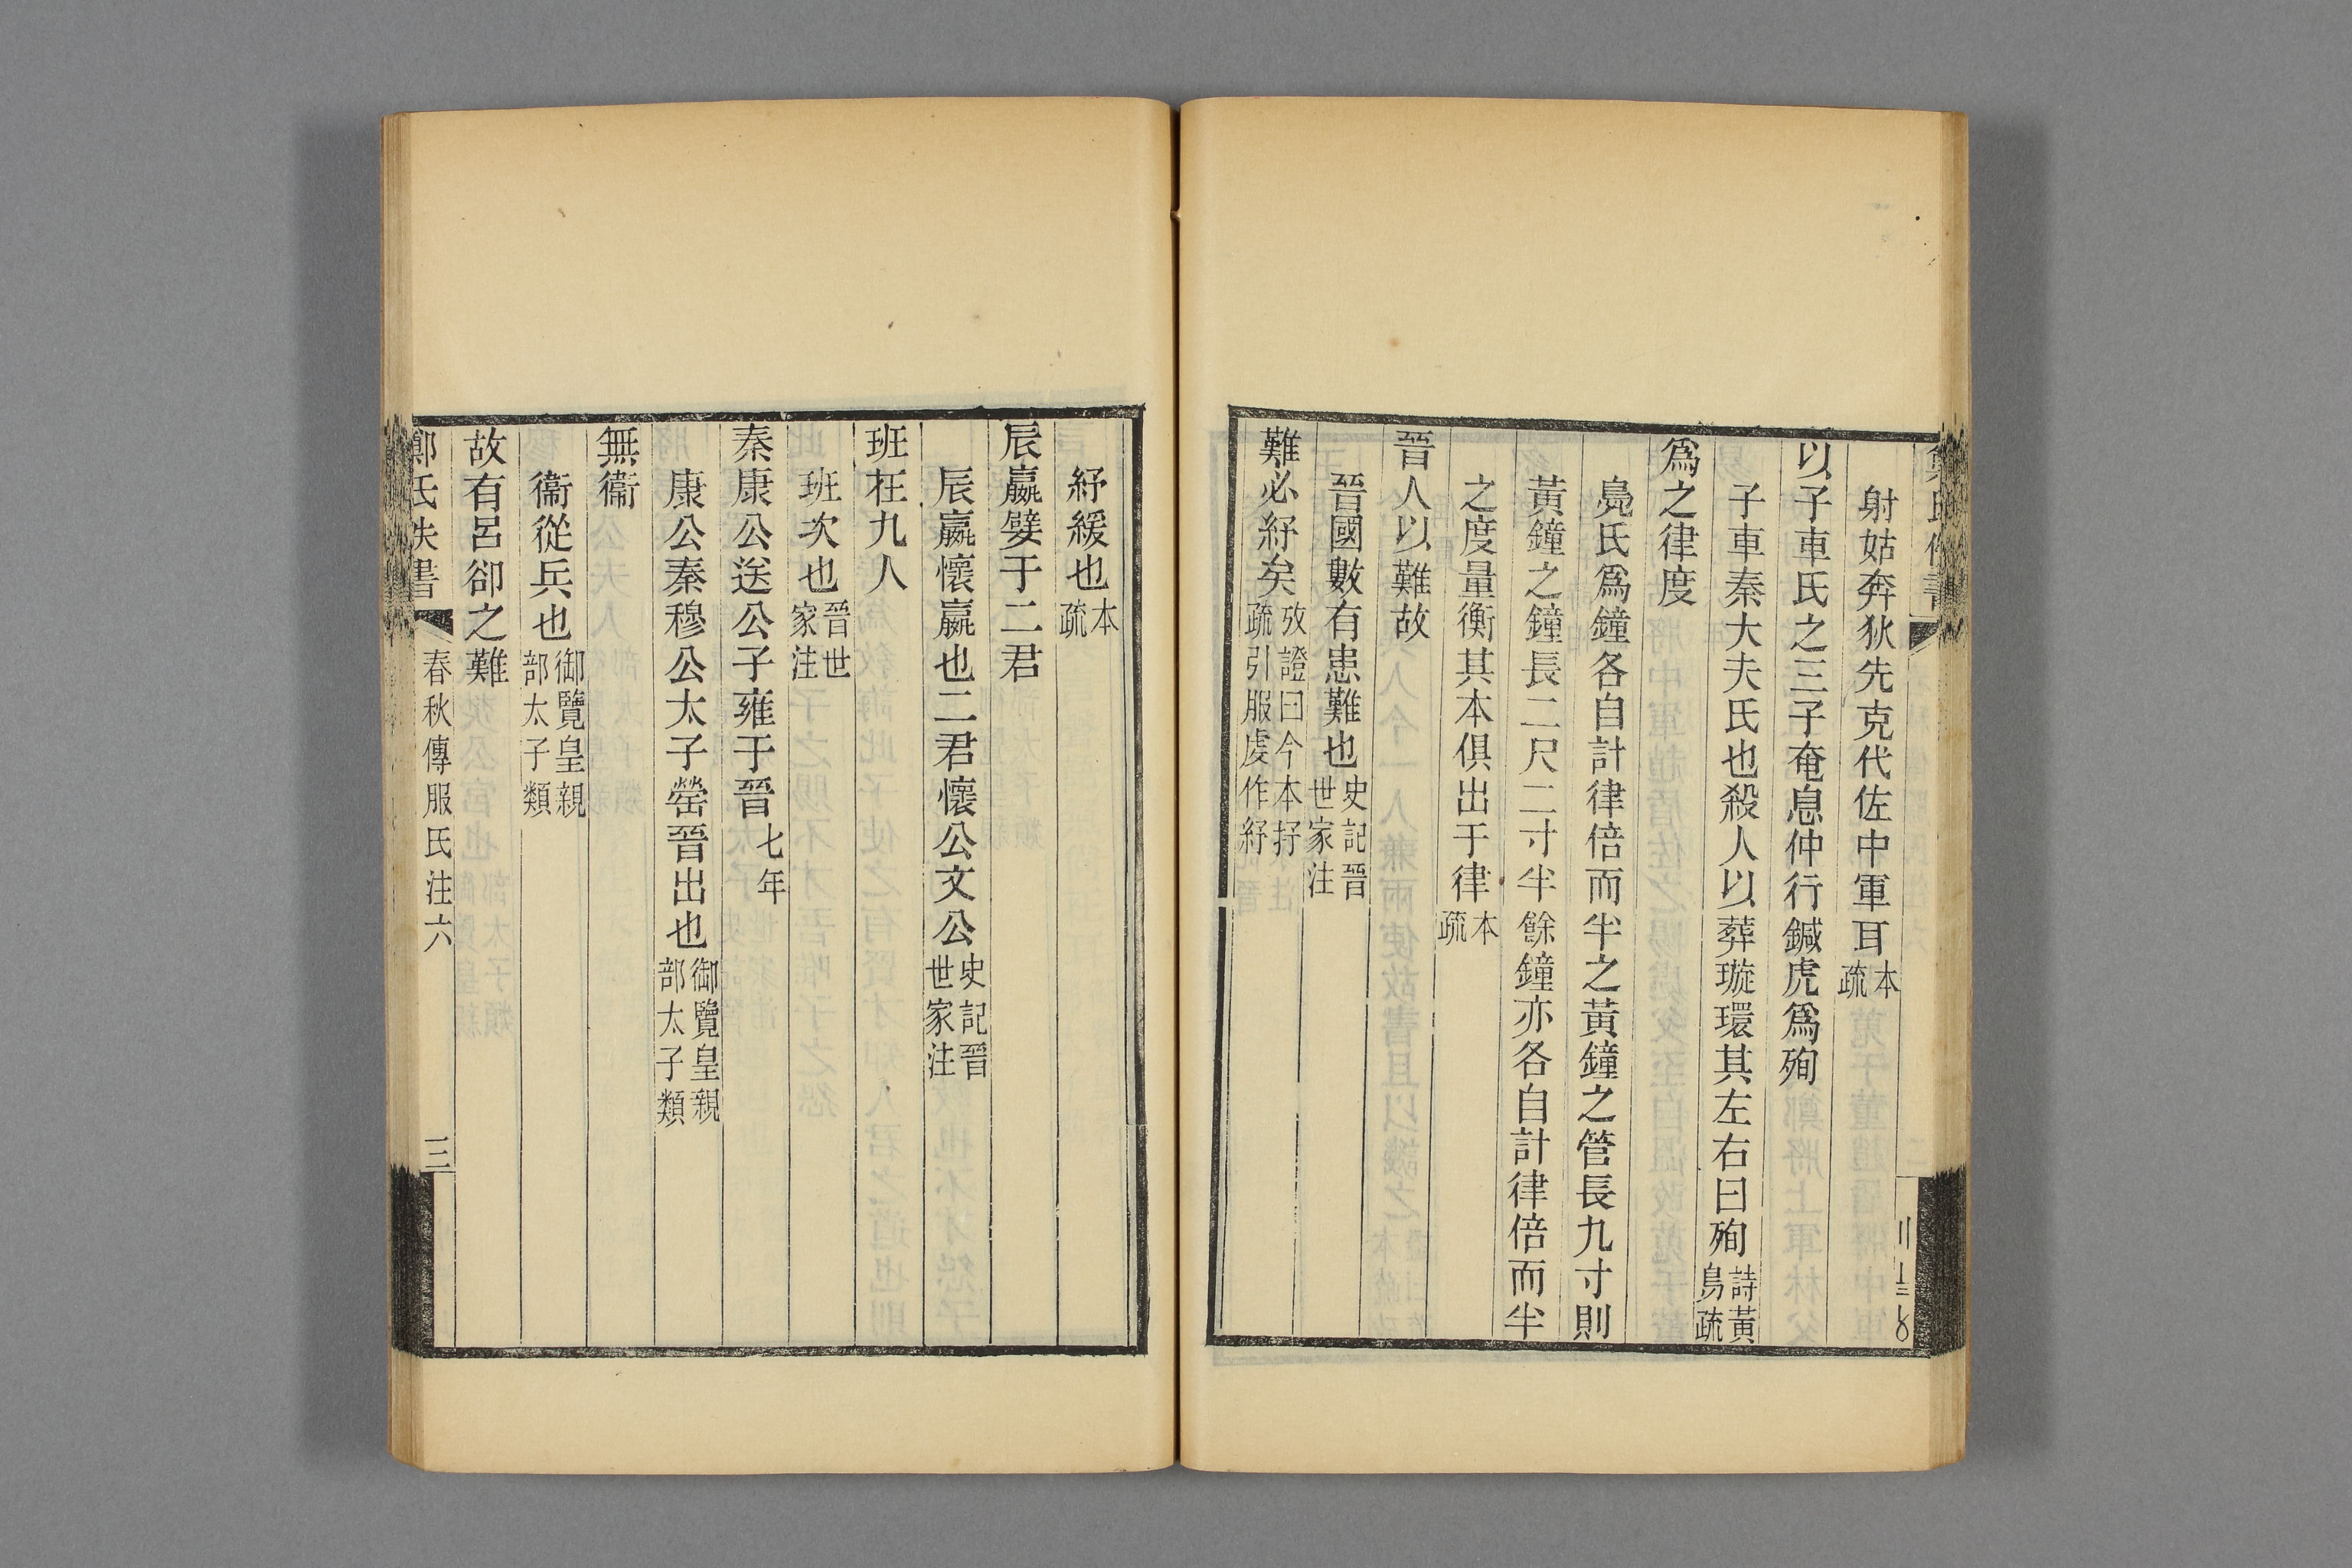 射姑奔狄先克代佐中軍耳本疏
以子車氏之三子奄息仲行鍼虎爲殉
子車秦大夫氏也殺人以葬璇環其左右曰殉詩黃鳥疏
爲之律度
鳧氏爲鐘各自計律倍而半之黃鐘之管長九寸則
黃鐘之鐘長二尺二寸半餘鐘亦各自計律倍而半
之度量衡其本俱出于律本疏
晉人以難故
晉國數有患難也史記晉世家注
難必紓矣攷證曰今本抒疏引服虔作紓
紓緩也本疏
辰嬴嬖于二君
辰嬴懷嬴也二君懷公文公史記晉世家注
班在九人
班次也晉世家注
秦康公送公子雍于晉七年
康公秦穆公太子罃晉出也御覽皇親部太子類
無衞
衞從兵也御覽皇親部太子類
故有呂郤之難
鄭氏佚書 春秋傳服氏注六 三